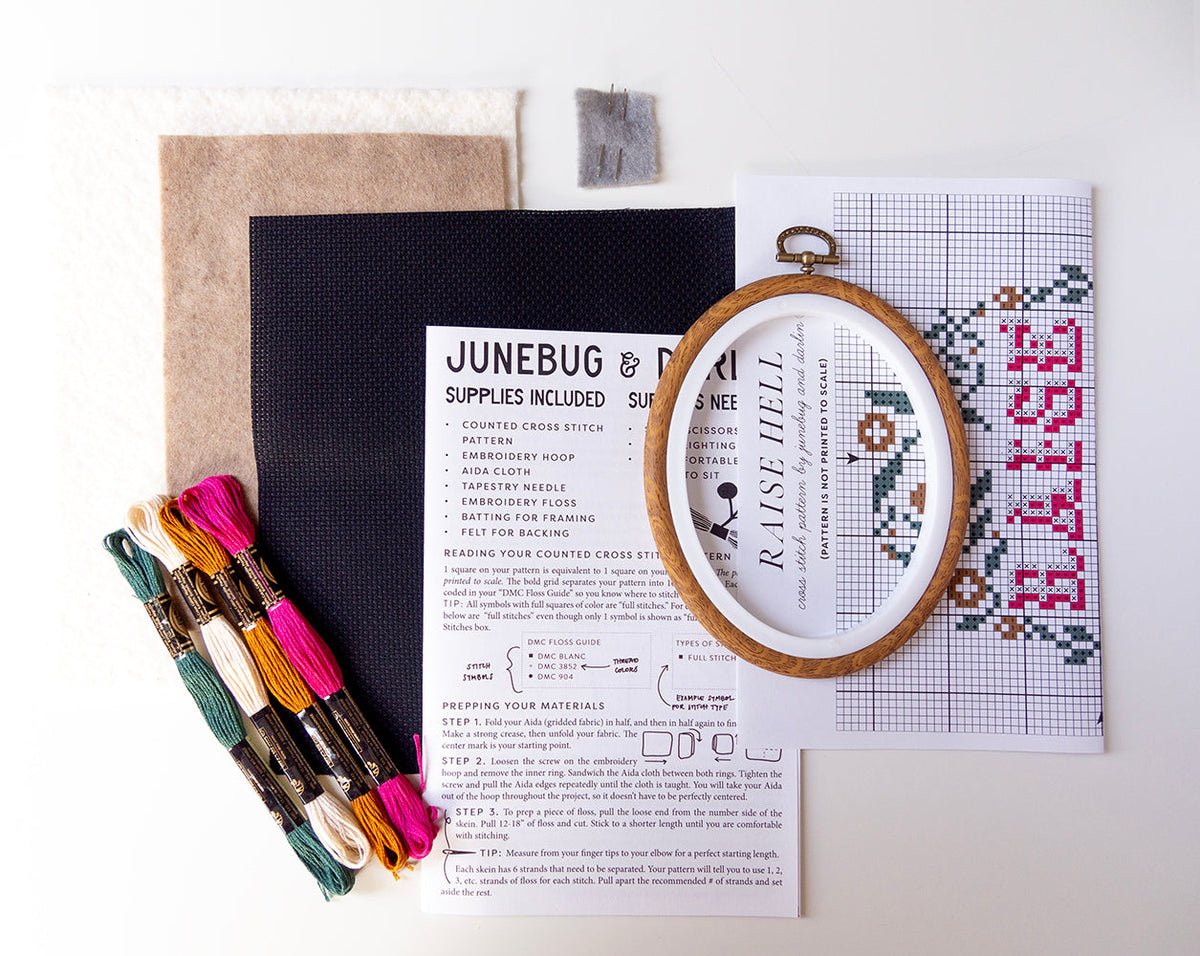 JUNEBUG &
SUPPLIES INCLUDED
• COUNTED CROSS STITCH
PATTERN
• EMBROIDERY HOOP
• AIDA CLOTH
• TAPESTRY NEEDLE
• EMBROIDERY FLOSS
• BATTING FOR FRAMING
• FELT FOR BACKING
TO SIT
READING YOUR COUNTED CROSS
1 square on your pattern is equivalent to 1 square on
printed to scale. The bold grid separates your pattern into
coded in your "DMC Floss Guide" so you know where to stitch
TIP: All symbols with full squares of color are "full stitches." For
below are "full stitches" even though only 1 symbol is shown as
Stitches box.
DMC FLOSS GUIDE
DMC BLANC
DMC 3852
DMC 904
STITCH
SYMBOLS
THREAD
COLORS
TYPES OF
FULL STITCH
EXAMPLE SYMBOL
FOR STITCH TYPE
PREPPING YOUR MATERIALS
STEP 1. Fold your Aida (gridded fabric) in half, and then in half again to
Make a strong crease, then unfold your fabric. The
center mark is your starting point.
STEP 2. Loosen the screw on the embroidery
hoop and remove the inner ring. Sandwich the Aida cloth between both rings. Tighten the
screw and pull the Aida edges repeatedly until the cloth is taught. You will take your Aida
out of the hoop throughout the project, so it doesn't have to be perfectly centered.
STEP 3. To prep a piece of floss, pull the loose end from the number side of the
skein. Pull 12-18" of floss and cut. Stick to a shorter length until you are comfortable
with stitching.
TIP: Measure from your finger tips to your elbow for a perfect starting length.
Each skein has 6 strands that need to be separated. Your pattern will tell you to use 1, 2,
3, etc. strands of floss for each stitch. Pull apart the recommended # of strands and set
aside the rest.
RAISE HELL
cross stitch pattern by junebug and darlin
(PATTERN IS NOT PRINTED TO SCALE)
RAISE